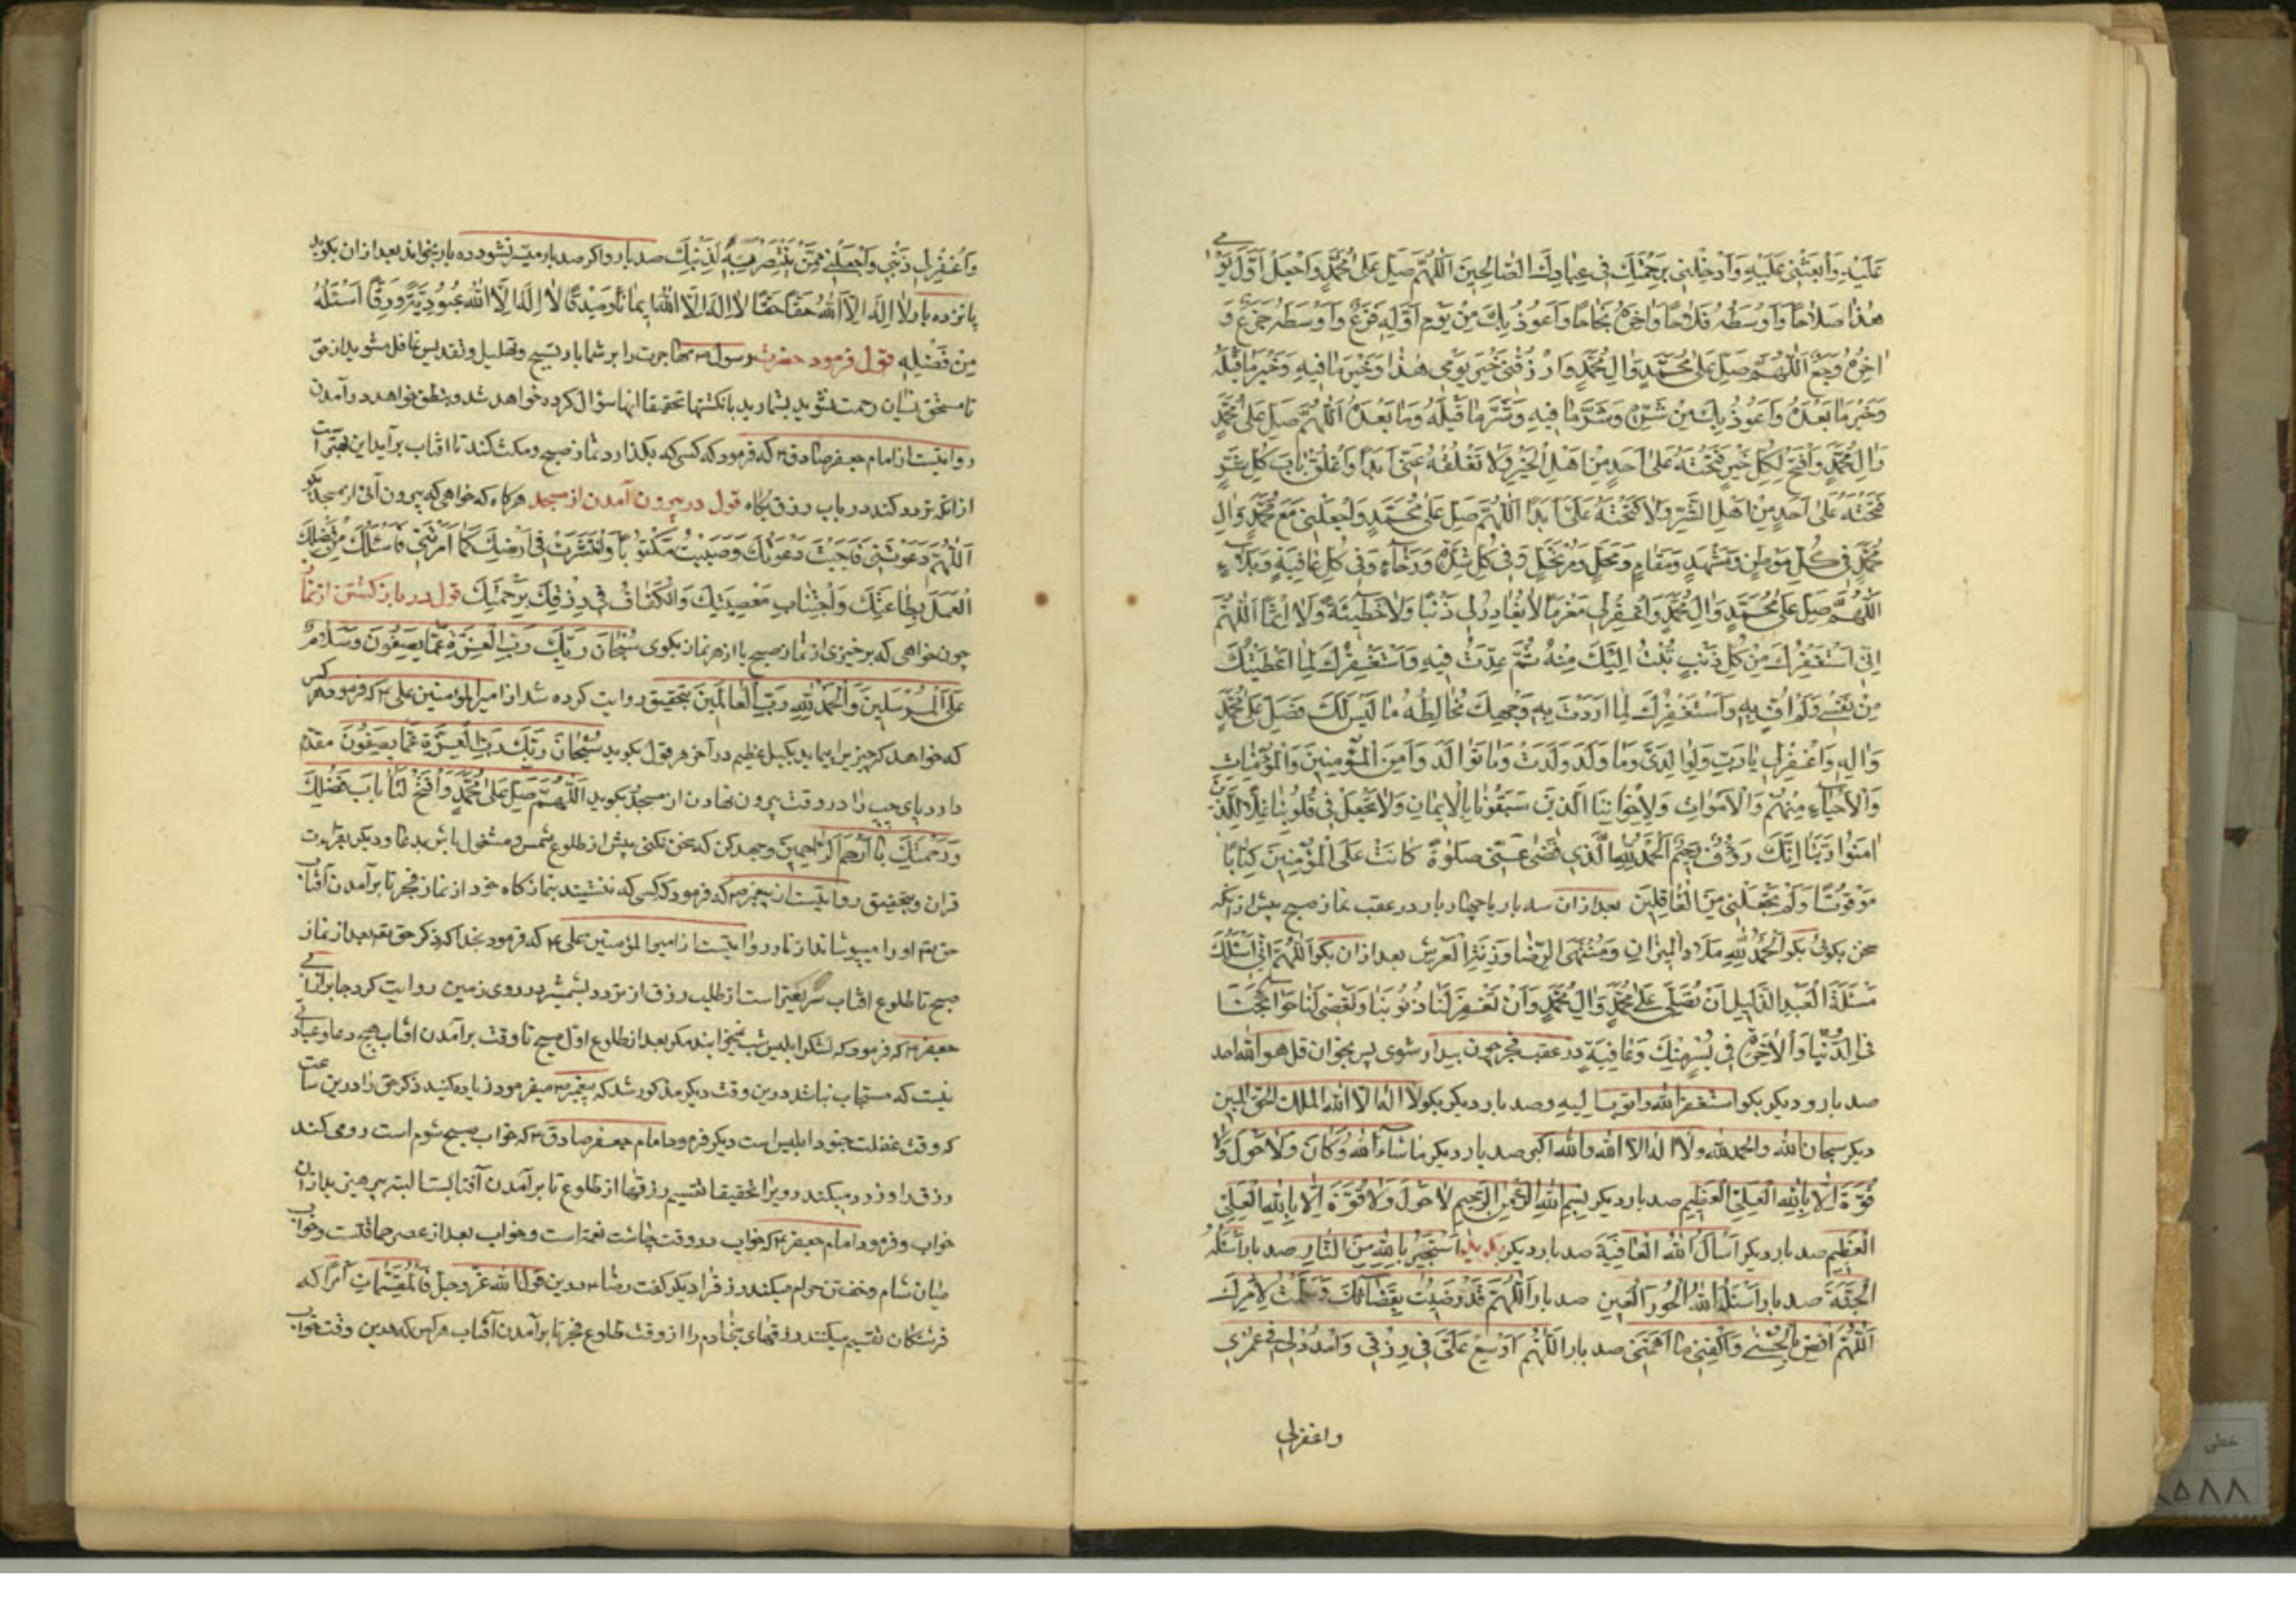 عَلَيْهِ وَابْعَثْنِي عَلَيْهِ وَاَدْخِلْنِي بِرَحْمَتِكَ فِي عِبَادِكَ الصَّالِحِينَ اَللّهُمَّ صَلِّ عَلى مُحَمَّدٍ وَاجْعَلْ اَوَّلَ يَوْمِي
هذا صَلاحًا وَاَوْسَطَهُ فَلاحًا وَاخِرَهُ نَجَاحًا وَاَعُوذُ بِكَ مِنْ يَوْمٍ اَوَّلُهُ فَزَعٌ وَاَوْسَطُهُ جَزَعٌ وَ
اخِرُهُ وَجَعٌ اَللّهُمَّ صَلِّ عَلى مُحَمَّدٍ وَالِ مُحَمَّدٍ وَارْزُقْنِي خَيْرَ يَوْمِي هذا وَخَيْرَ مَا فِيهِ وَخَيْرَ مَا قَبْلَهُ
وَخَيْرَ مَا بَعْدَهُ وَاَعُوذُ بِكَ مِنْ شَرِّهِ وَشَرِّ مَا فِيهِ وَشَرِّ مَا قَبْلَهُ وَمَا بَعْدَهُ اَللّهُمَّ صَلِّ عَلى مُحَمَّدٍ
وَالِ مُحَمَّدٍ وَافْتَحْ لِي كُلَّ خَيْرٍ فَتَحْتَهُ عَلى اَحَدٍ مِنْ اَهْلِ الْخَيْرِ وَلا تَغْلِقْهُ عَنِّي اَبَدًا وَاغْلِقْ بَابَ كُلِّ شَرٍّ
فَتَحْتَهُ عَلى اَحَدٍ مِنْ اَهْلِ الشَّرِّ وَلا تَفْتَحْهُ عَلَيَّ اَبَدًا اَللّهُمَّ صَلِّ عَلى مُحَمَّدٍ وَاجْعَلْنِي مَعَ مُحَمَّدٍ وَالِ
مُحَمَّدٍ فِي كُلِّ مَوْطِنٍ وَمَشْهَدٍ وَمَقَامٍ وَمَحَلٍّ وَمُرْتَحَلٍ وَفِي كُلِّ شِدَّةٍ وَرَخَاءٍ وَفِي كُلِّ عَافِيَةٍ وَبَلاءٍ
اَللّهُمَّ صَلِّ عَلى مُحَمَّدٍ وَالِ مُحَمَّدٍ وَاغْفِرْ لِي مَغْفِرَةً لا تُغَادِرُ لِي ذَنْبًا وَلا خَطِيئَةً وَلا اِثْمًا اَللّهُمَّ
اِنِّي اَسْتَغْفِرُكَ مِنْ كُلِّ ذَنْبٍ تُبْتُ اِلَيْكَ مِنْهُ ثُمَّ عُدْتُ فِيهِ وَاَسْتَغْفِرُكَ لِمَا اَعْطَيْتُكَ
مِنْ نَفْسِي وَلَمْ اَفِ بِهِ وَاَسْتَغْفِرُكَ لِمَا اَرَدْتُ بِهِ وَجْهَكَ مُخَالِطُهُ مَا لَيْسَ لَكَ فَصَلِّ عَلى مُحَمَّدٍ
وَالِهِ وَاغْفِرْ لِي يَا رَبِّ وَلِوَالِدَيَّ وَمَا وَلَدَ وَلَدْتُ وَمَا تَوَالَدَ وَا مِنَ الْمُؤْمِنِينَ وَالْمُؤْمِنَاتِ
وَالْاَحْيَاءِ مِنْهُمْ وَالْاَمْوَاتِ وَلِاِخْوَانِنَا الَّذِينَ سَبَقُونَا بِالْاِيمَانِ وَلا تَجْعَلْ فِي قُلُوبِنَا غِلًّا لِلَّذِينَ
امَنُوا رَبَّنَا اِنَّكَ رَؤُفٌ رَحِيمٌ اَلْحَمْدُ لِلّهِ الَّذِي قَضى عَنِّي صَلوةً كَانَتْ عَلَى الْمُؤْمِنِينَ كِتَابًا
مَوْقُوتًا وَلَمْ يَجْعَلْنِي مِنَ الْغَافِلِينَ بعد ازان سه بار يا چهار بار در عقب نماز صبح پيش از آنكه
سخن بكوئى بكو اَلْحَمْدُ لِلّهِ مِلْءَ الْمِيزَانِ وَمُنْتَهَى الرِّضَا وَزِنَةَ الْعَرْشِ بعد ازان بكو اَللّهُمَّ اِنِّي اَسْئَلُكَ
مَسْئَلَةَ الْعَبْدِ الذَّلِيلِ اَنْ تُصَلِّيَ عَلى مُحَمَّدٍ وَالِ مُحَمَّدٍ وَاَنْ تَغْفِرَ لَنَا ذُنُوبَنَا وَتَقْضِيَ لَنَا حَوَائِجَنَا
فِي الدُّنْيَا وَالْاخِرَةِ فِي يُسْرٍ مِنْكَ وَعَافِيَةٍ در عقب فجر چون بيدار شوى پس بخوان قل هو الله احد
صد بار و ديكر بكو استغفر الله واتوب اليه وصد بار ديكر بكو لا اله الا الله الملك الحق المبين
ديكر سبحان الله والحمد لله ولا اله الا الله والله اكبر صد بار ديكر ما شاء الله وكان ولا حول ولا
قُوَّةَ اِلا بِاللهِ الْعَلِيِّ الْعَظِيمِ صد بار ديكر بِسْمِ اللهِ الرَّحْمنِ الرَّحِيمِ لا حَوْلَ وَلا قُوَّةَ اِلا بِاللهِ الْعَلِيِّ
الْعَظِيمِ صد بار ديكر اَسْاَلُ اللهَ الْعَافِيَةَ صد بار ديكر بكويد اَسْتَجِيرُ بِاللهِ مِنَ النَّارِ صد بار اَسْئَلُهُ
الْجَنَّةَ صد بار اَسْئَلُ اللهَ الْحُورَ الْعِينِ صد بار اَللّهُمَّ قَدْ رَضِيتُ بِقَضَائِكَ وَسَلَّمْتُ لِاَمْرِكَ
اَللّهُمَّ اقْضِ بِالْحُسْنى وَاكْفِنِي مَا اَهَمَّنِي صد بار اَللّهُمَّ اَوْسِعْ عَلَيَّ فِي رِزْقِي وَامْدُدْ لِي فِي عُمْرِي
واغفر لي
وَاغْفِرْ لِي ذَنْبِي وَاجْعَلْنِي مِمَّنْ يَنْتَصِرُ بِهِ لِدِينِكَ صد بار و اكر صد بار ميسر نشود ده بار بخواند بعد ازان بكويد
پانزده بار لا اِلهَ اِلا اللهُ حَقًّا حَقًّا لا اِلهَ اِلا اللهُ اِيمَانًا وَصِدْقًا لا اِلهَ اِلا اللهُ عُبُودِيَّةً وَرِقًّا اَسْئَلُهُ
مِنْ فَضْلِهِ قول فرمود حضرت رسول ص مهاجرت را بر شما باد تسبيح وتهليل وتقديس غافل مشويد از حق
تا مستحق نسيان رحمت نشويد بشماريد بانكشتها تحقيقا انها سؤال كرده خواهد شد و بنطق خواهد در آمدن
روايتست از امام جعفر صادق ع كه فرمود كه كسى كه بكذارد نماز صبح ومكث كند تا افتاب برآيد اين بهتر است
از انكه تردد كند در باب رزق بكاه قول در بيرون آمدن از مسجد هركاه كه خواهى كه بيرون آئى از مسجد بكو
اَللّهُمَّ دَعَوْتَنِي فَاَجَبْتُ دَعْوَتَكَ وَصَلَّيْتُ مَكْتُوبًا وَانْتَشَرْتُ فِي اَرْضِكَ كَمَا اَمَرْتَنِي فَاَسْئَلُكَ مِنْ فَضْلِكَ
الْعَمَلَ بِطَاعَتِكَ وَاجْتِنَابِ مَعْصِيَتِكَ وَالْكَفَافَ فِي رِزْقِكَ بِرَحْمَتِكَ قول در باز كشتن از نماز
چون خواهى كه برخيزى از نماز صبح يا از هر نماز بكوى سُبْحَانَ رَبِّكَ رَبِّ الْعِزَّةِ عَمَّا يَصِفُونَ وَسَلامٌ
عَلَى الْمُرْسَلِينَ وَالْحَمْدُ لِلّهِ رَبِّ الْعَالَمِينَ بتحقيق روايت كرده شد از امير المؤمنين على ع كه فرمود هر كس
كه خواهد كه چيز پيمايد بكيل عظيم در آخر هر قول بكويد سُبْحَانَ رَبِّكَ رَبِّ الْعِزَّةِ عَمَّا يَصِفُونَ مقدم
دارد پاى چپ را در وقت بيرون نهادن از مسجد بكويد اَللّهُمَّ صَلِّ عَلى مُحَمَّدٍ وَافْتَحْ لَنَا بَابَ فَضْلِكَ
وَرَحْمَتِكَ يَا اَرْحَمَ الرَّاحِمِينَ وجهد كن كه سخن نكنى پيش از طلوع شمس ومشغول باش بدعا و ديكر بقراءت
قران وبتحقيق روايتست از پيغمبر ص كه فرمود كه كسى كه بنشيند بنماز كاه خود از نماز فجر تا برآمدن آفتاب
حق تع او را ميپوشاند از نار و روايتست از امير المؤمنين على ع كه فرمود بخدا كه ذكر حق تع بعد از نماز
صبح تا طلوع افتاب سريعتر است از طلب رزق از تردد بشمشير در روى زمين روايت كرد جابر از ابى
جعفر ع كه فرمود كه لشكر ابليس شب نميخوابند مكر بعد از طلوع اول صبح تا وقت برآمدن افتاب هيچ دعا و عبادتى
نيست كه مستجاب نباشد درين وقت ديكر مذكور شد كه پيغمبر ص ميفرمود زياده كنيد ذكر حق را درين ساعت
كه وقت غفلت جنود ابليس است ديكر فرمود امام جعفر صادق ع كه خواب صبح شوم است رد مى كند
رزق را و زرد ميكند روى را تحقيقا تقسيم رزقها از طلوع تا برآمدن آفتابست البته بپرهيزيد از آن
خواب و فرمود امام جعفر ع كه خواب در وقت چاشت نعمة است وخواب بعد از عصر حماقتست وخواب
ميان شام وخفتن حرام ميكند رزق را ديكر كفت رضا ع درين قول الله عز وجل فَالْمُقَسِّمَاتِ اَمْرًا كه
فرشتكان تقسيم ميكنند رزقهاى بنى آدم را از وقت طلوع فجر تا برآمدن آفتاب هر كس كه درين وقت خواب
خطى